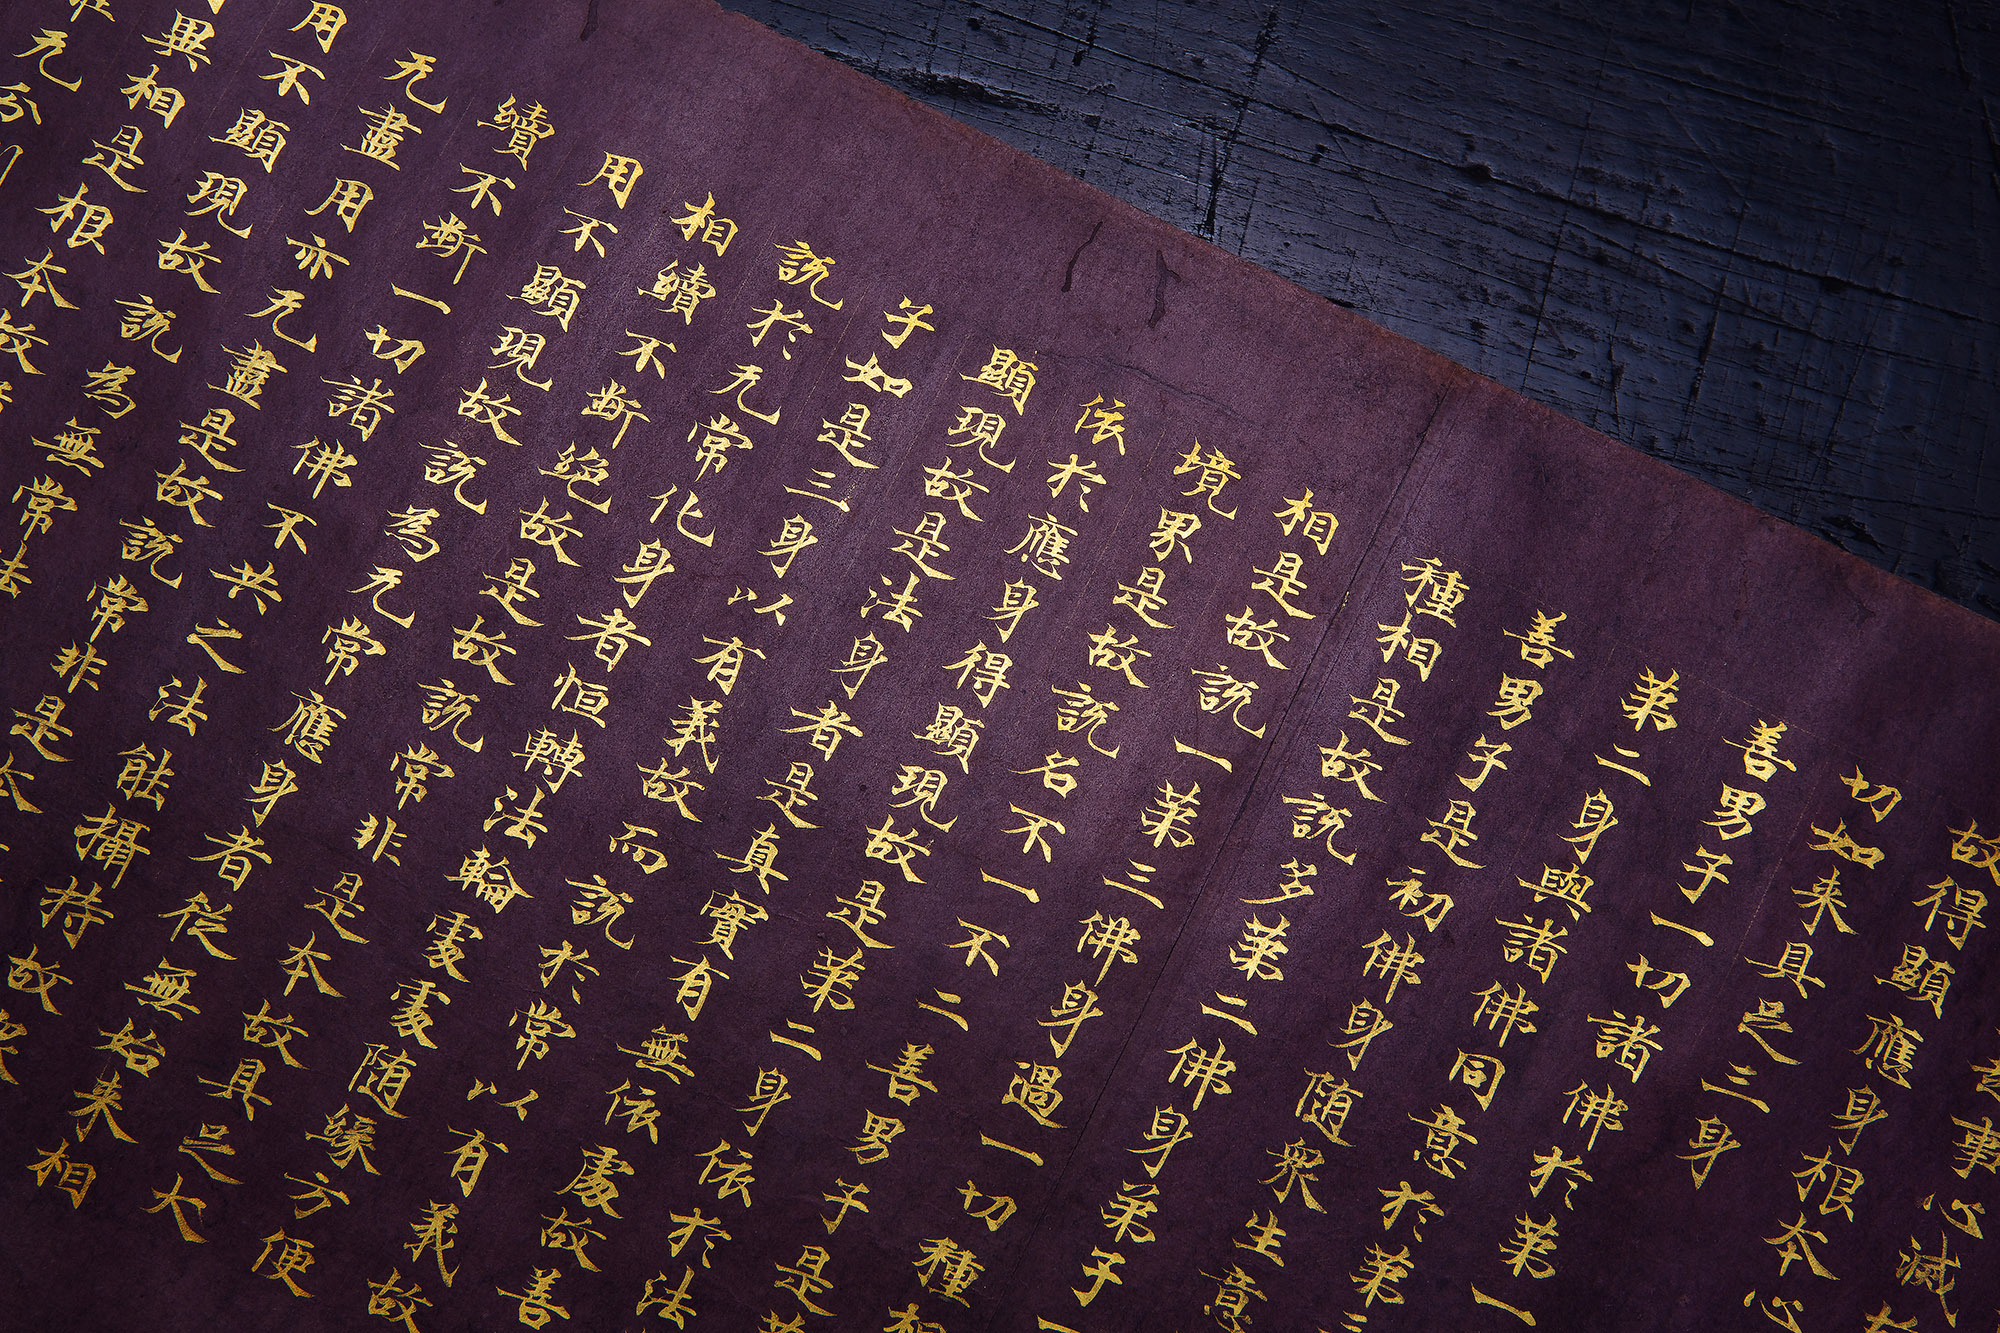 事心滅故
故得顯應身根本心
切如来具足三身
善男子一切諸佛於第一
第二身與諸佛同意於第三
善男子是初佛身随衆生意
種相是故説多第二佛身弟子一
相是故説一第三佛身過一切種相
境界是故説名不一不二善男子是第
依於應身得顯現故是第二身依於法
顯現故是法身者是真實有無依處故善
子如是三身以有義故而説於常以有義故
説於无常化身者恒轉法輪處處随緣方便
相續不断絶故是故説常非是本故具足大
用不顯現故説為无常應身者從無始来相
續不断一切諸佛不共之法能攝持故
无盡用亦无盡是故説常非是本
用不顯現故説為無常法
異相是根本故
无分